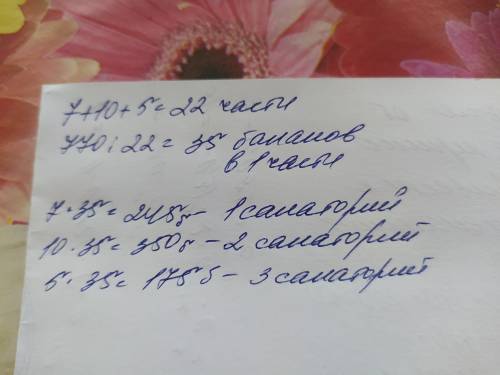 7+10+5=22 части
770:22=35 бананов
в 1 части
7·35=245б- 1 санаторий
10·35=350б-2 санаторий
5·35=175б-3 санаторий